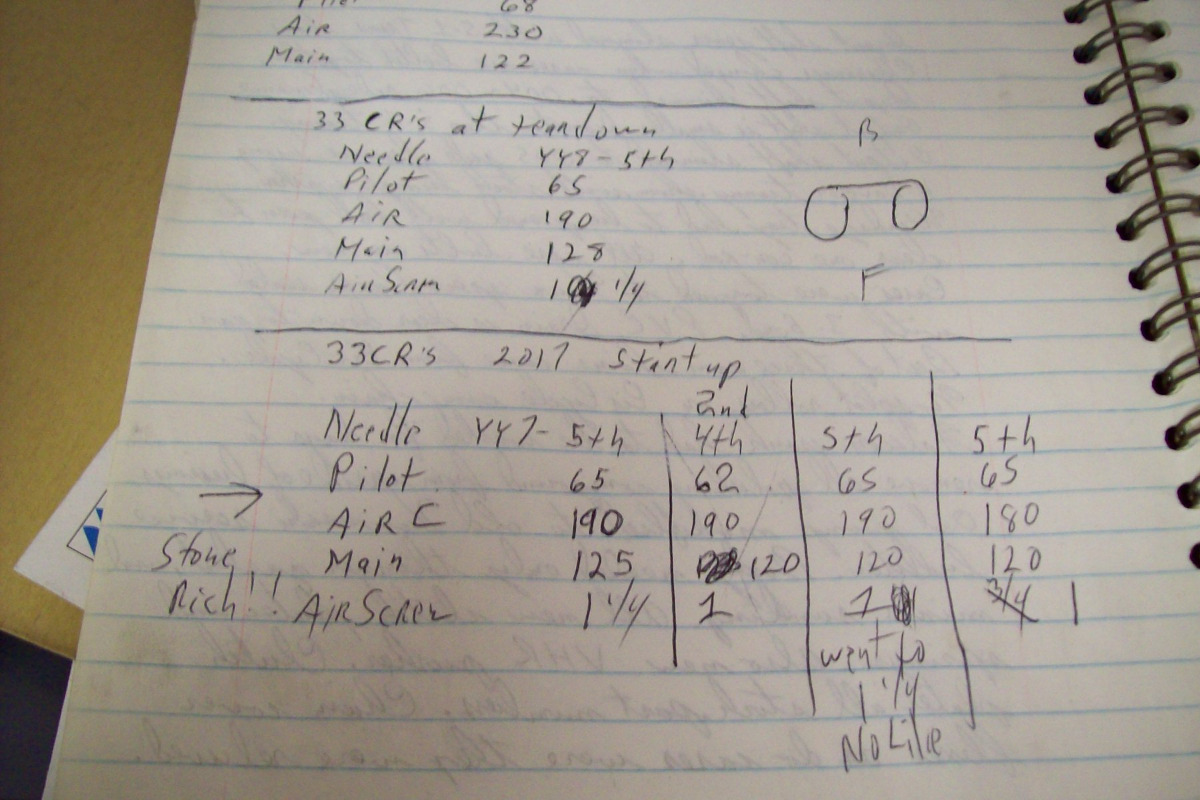 Pilot 68
Air 230
Main 122
33 CR's at teardown
B
Needle YY8-5th
Pilot 65
AiR 190
Main 128
AirScrew 1 1/4
F
33CR's 2017 Startup
2nd
Needle YY7- 5th 4th 5th 5th
Pilot 65 62 65 65
→ AiR C 190 190 190 180
Stone Main 125 120 120 120
Rich!! AirScrew 1 1/4 1 1 3/4 1
went to
1 1/4
No Like